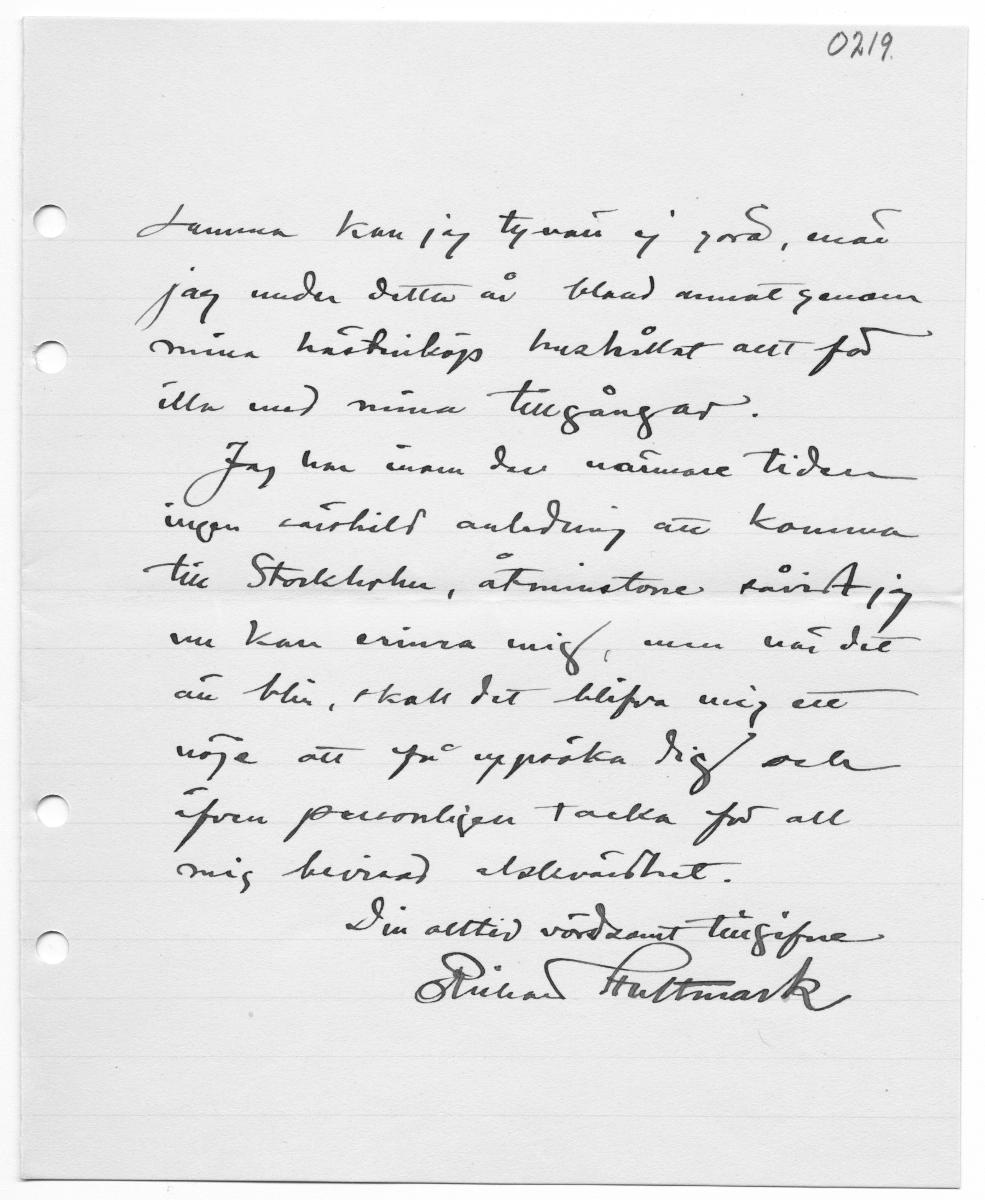 0219.
samma kan jag tyvärr ej göra, när
jag under detta år bland annat genom
mina hästinköp hushållat allt för
illa med mina tillgångar.
Jag har inom den närmare tiden
ingen särskild anledning att komma
till Stockholm, åtminstone såvidt jag
nu kan erinra mig, men när det
än blir, skall det blifva mig ett
nöje att få uppsöka Dig och
äfven personligen tacka för all
mig bevisad älskvärdhet.
Din alltid vördsamt tillgifne
Richard Hultmark